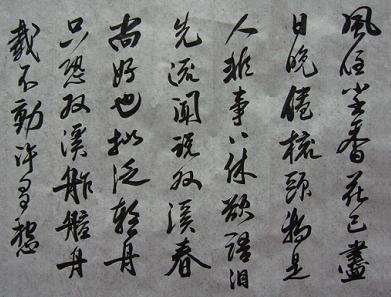 風住尘香花已盡
日晚倦梳頭物是
人非事々休欲語泪
先流聞說双溪春
尚好也拟泛輕舟
只恐双溪舴艋舟
載不動許多愁